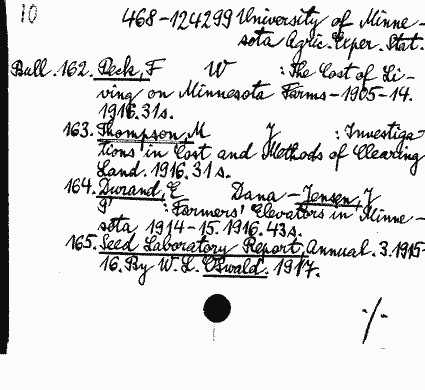 10
468-124299 University of Minne-
sota Agric. Exper. Stat.
Bull. 162. Peck, F W : The Cost of Li-
ving on Minnesota Farms - 1905-14.
1916. 31 s.
163. Thompson, M J : Investiga
tions in Cost and Methods of Clearing
Land. 1916. 31 s.
164. Durand, E Dana - Jensen, J
P : Farmers' Elevators in Minne-
sota 1914-15. 1916. 43 s.
165. Seed Laboratory Report, Annual. 3. 1915-
16. By W. L. Oswald. 1917.
·/-